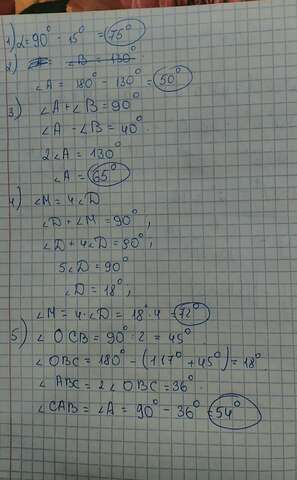 1) α = 90° - 15° = 75°
2) ∠B = 130°
∠A = 180° - 130° = 50°
3) ∠A + ∠B = 90°
∠A - ∠B = 40°.
2∠A = 130°
∠A = 65°
4) ∠M = 4∠D
∠D + ∠M = 90°,
∠D + 4∠D = 90°,
5∠D = 90°
∠D = 18°,
∠M = 4·∠D = 18°·4 = 72°
5) ∠OCB = 90°:2 = 45°
∠OBC = 180° - (117° + 45°) = 18°
∠ABC = 2∠OBC = 36°.
∠CAB = ∠A = 90° - 36° = 54°